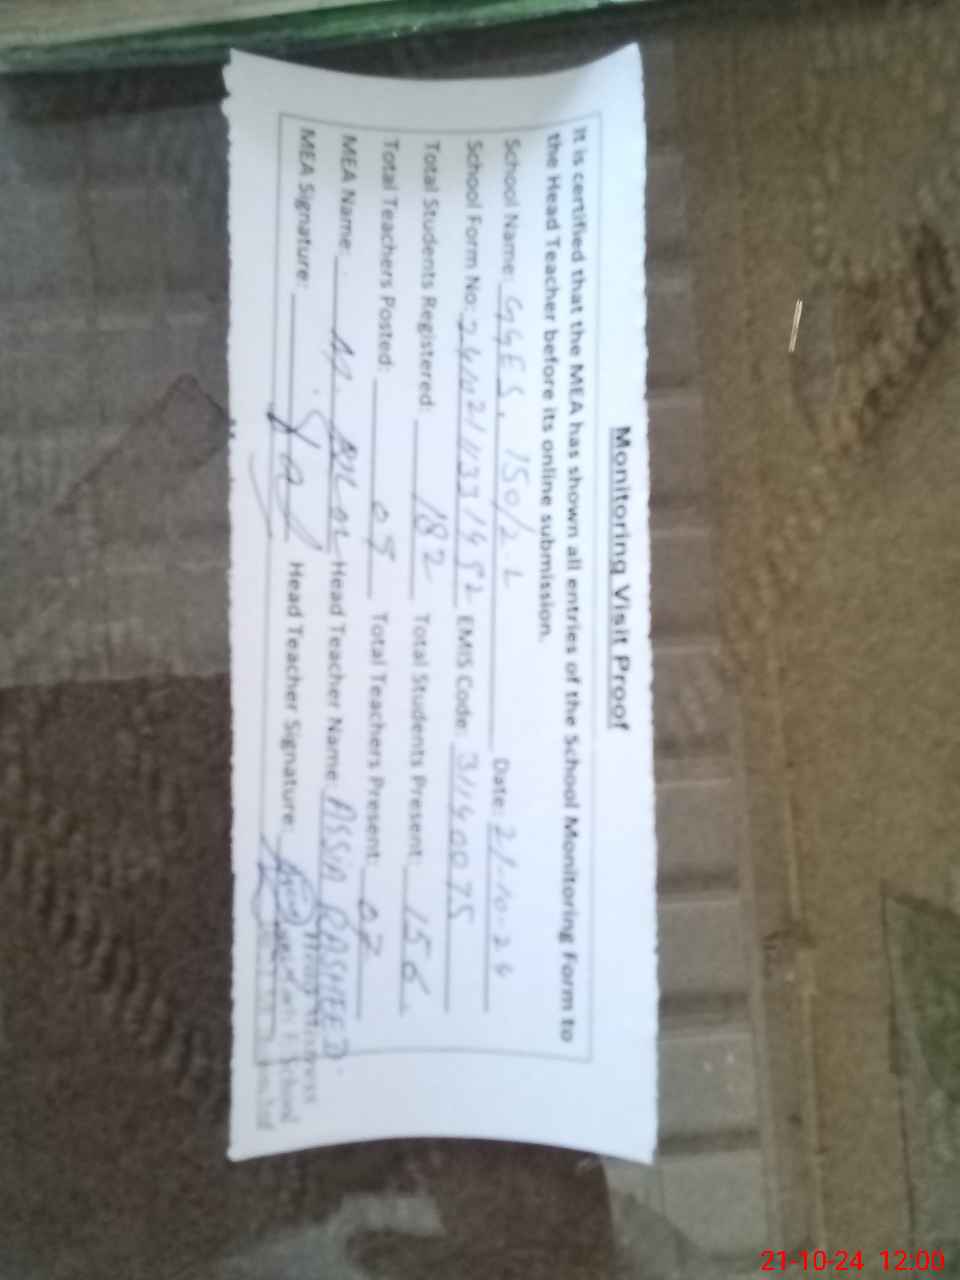 Monitoring Visit Proof
It is certified that the MEA has shown all entries of the School Monitoring Form to
the Head Teacher before its online submission.
School Name: GGES, 150/2-L Date: 21-10-24
School Form No: EMIS Code: 31140075
Total Students Registered: 182 Total Students Present: 156
Total Teachers Posted: Total Teachers Present: 07
MEA Name: Head Teacher Name: ASSIA RASHEED
MEA Signature: Head Teacher Signature:
School
21-10-24 12:00